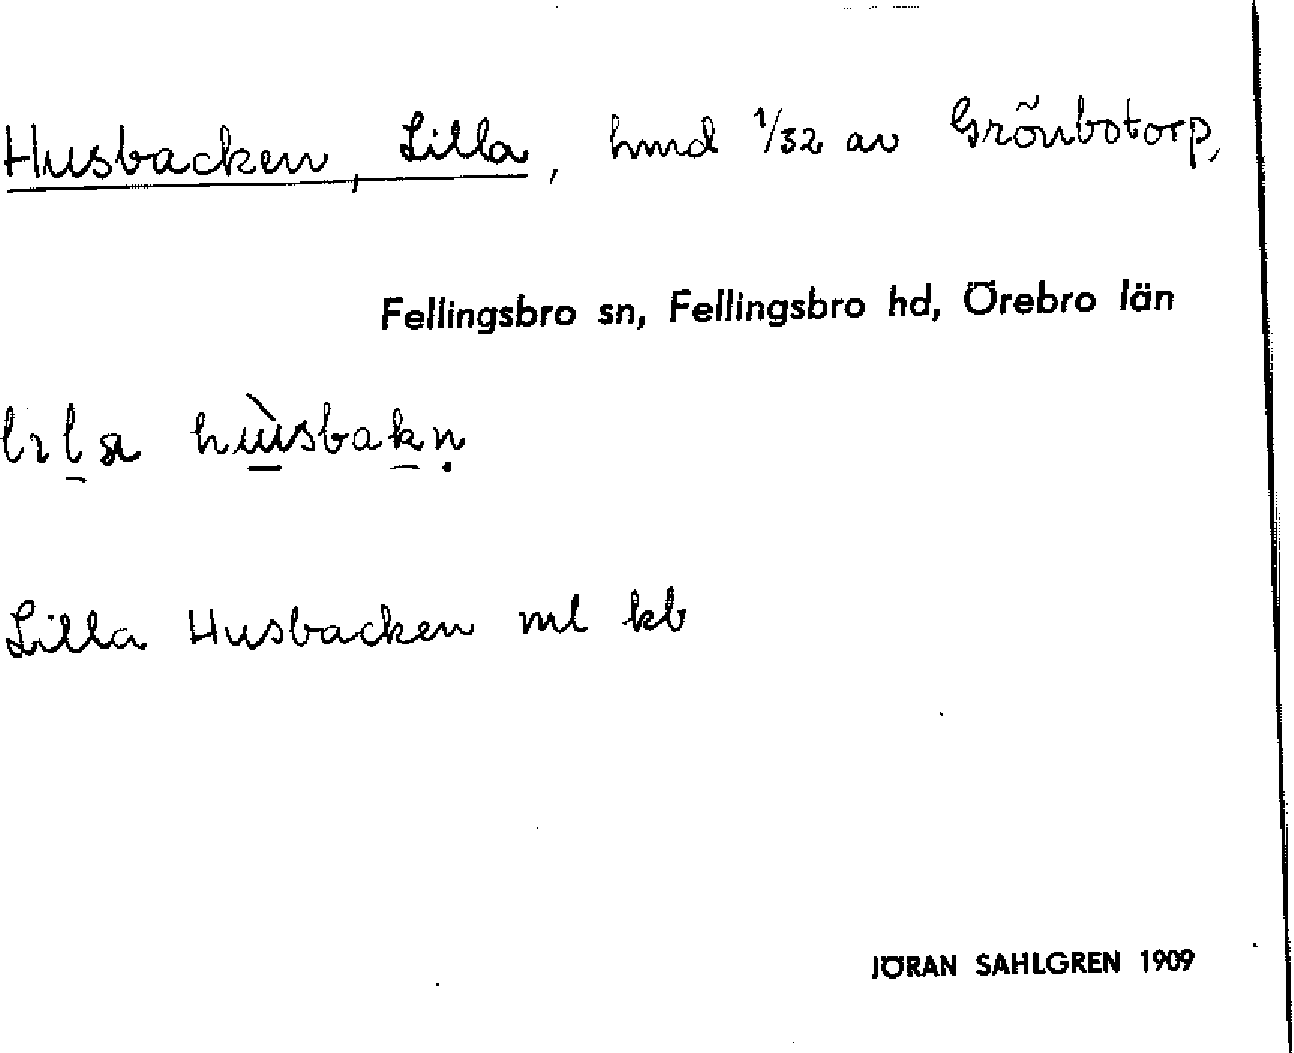 Husbacken, Lilla, hmd 1/32 av Grönbotorp,
Fellingsbro sn, Fellingsbro hd, Örebro län
lıla hùsbakn̥
Lilla Husbacken ml kb
JÖRAN SAHLGREN 1909